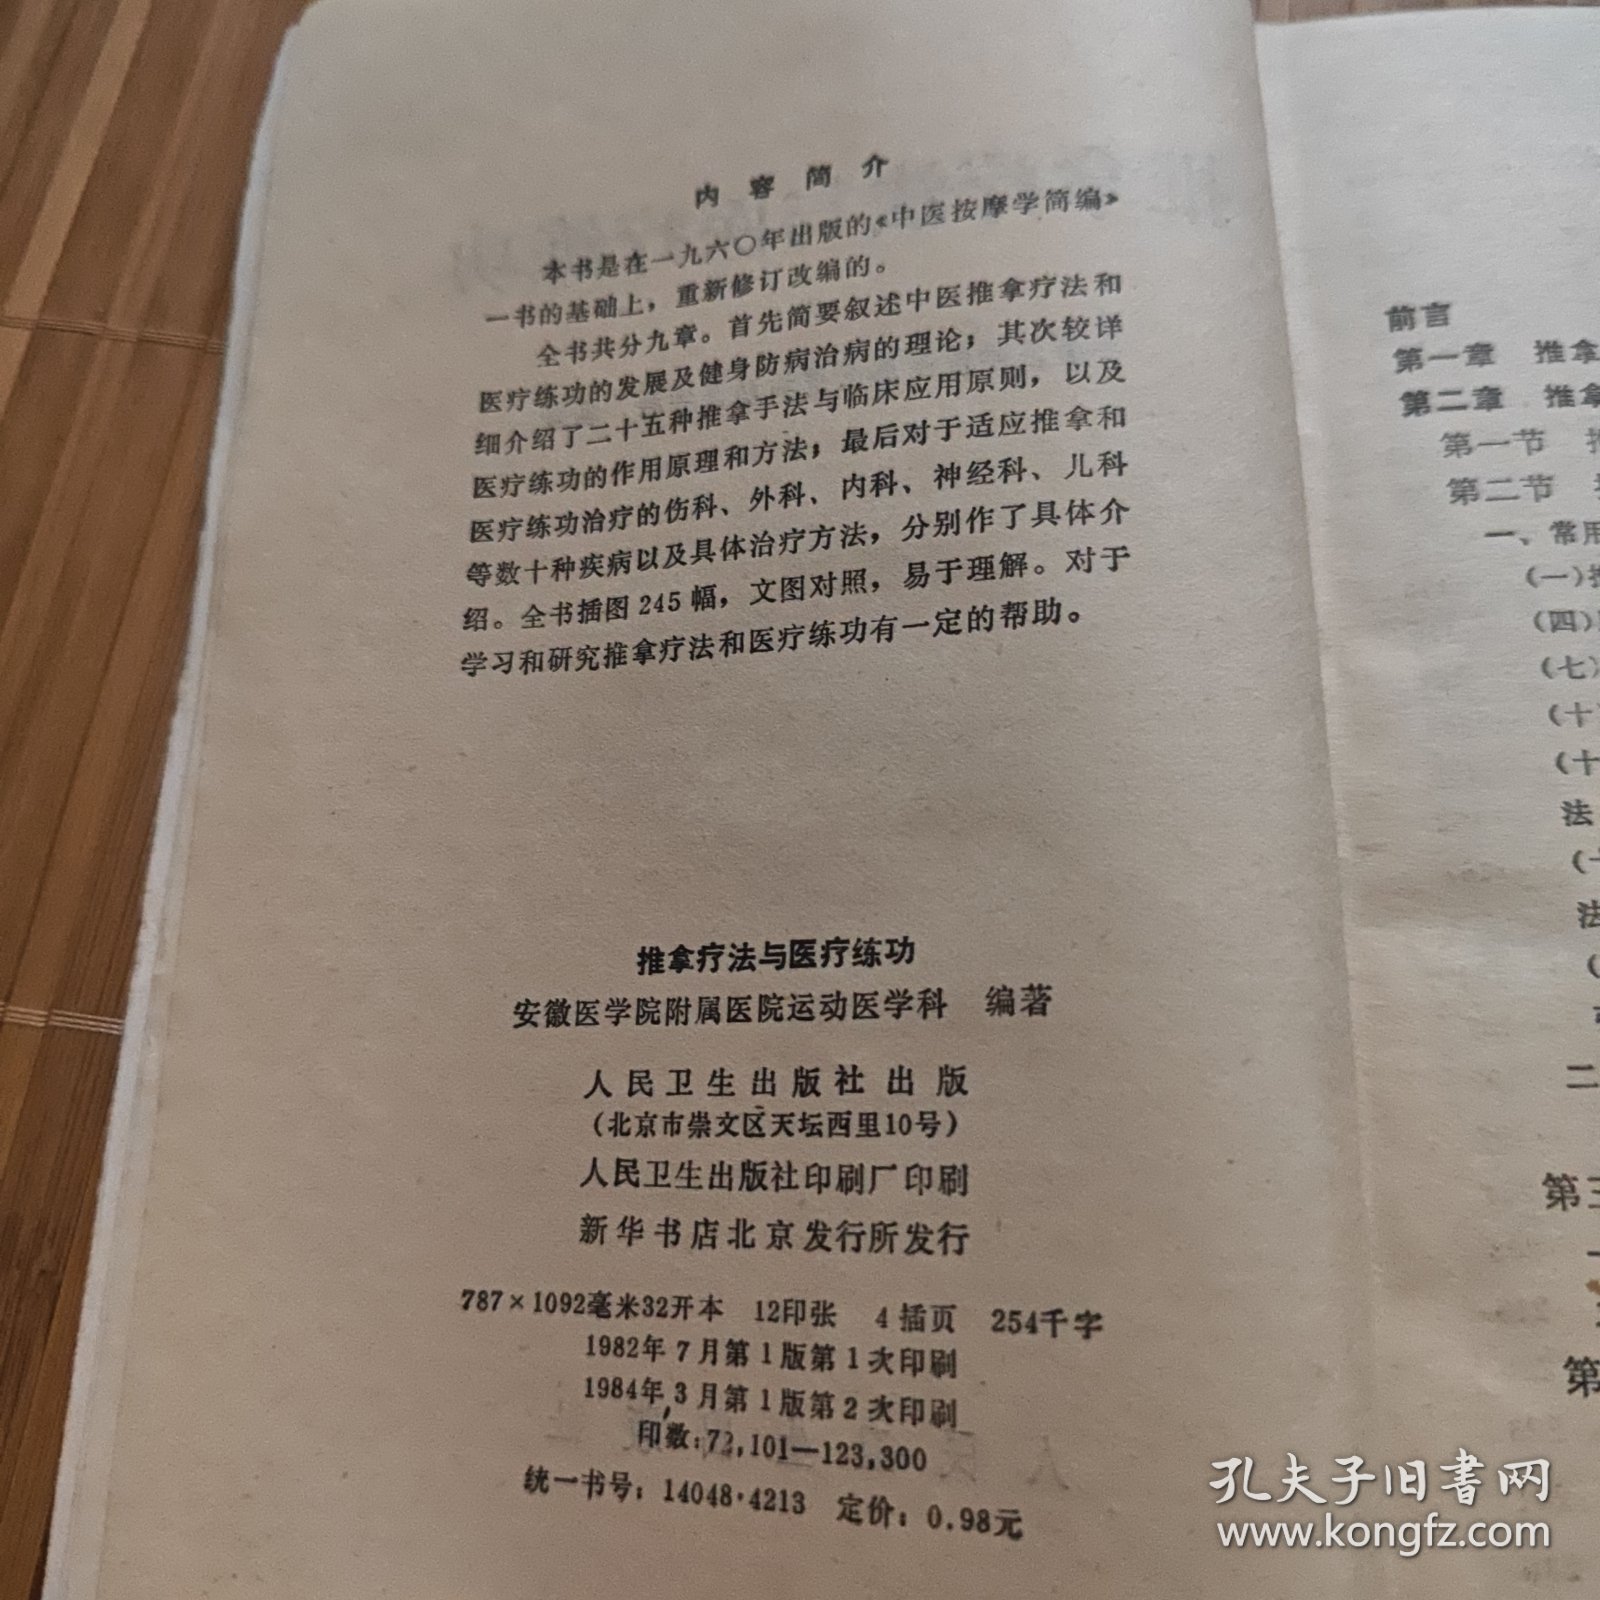 内容简介
本书是在一九六〇年出版的《中医按摩学简编》
一书的基础上，重新修订改编的。
全书共分九章。首先简要叙述中医推拿疗法和
医疗练功的发展及健身防病治病的理论；其次较详
细介绍了二十五种推拿手法与临床应用原则，以及
医疗练功的作用原理和方法；最后对于适应推拿和
医疗练功治疗的伤科、外科、内科、神经科、儿科
等数十种疾病以及具体治疗方法，分别作了具体介
绍。全书插图245幅，文图对照，易于理解。对于
学习和研究推拿疗法和医疗练功有一定的帮助。
推拿疗法与医疗练功
安徽医学院附属医院运动医学科 编著
人民卫生出版社出版
（北京市崇文区天坛西里10号）
人民卫生出版社印刷厂印刷
新华书店北京发行所发行
787×1092毫米32开本 12印张 4插页 254千字
1982年7月第1版第1次印刷
1984年3月第1版第2次印刷
印数：72,101—123,300
统一书号：14048·4213 定价：0.98元
前言
第一章 推拿
第二章 推拿
第一节
第二节
一、常用
（一）推
（四）
（七）
（十
（十
法
（十
法
（
二
第三
一
第
孔夫子旧书网
www.kongfz.com